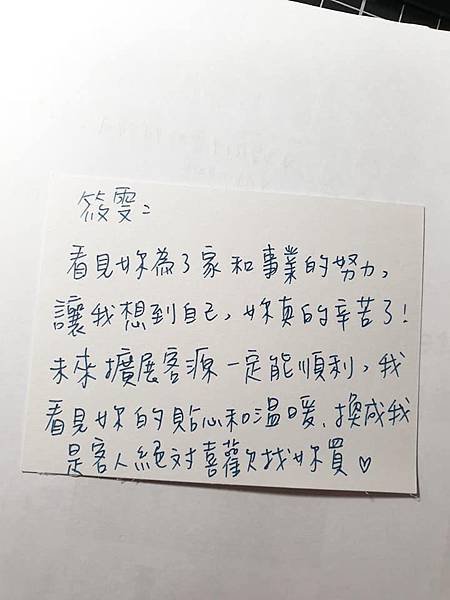 筱雯：
看見妳為了家和事業的努力，
讓我想到自己，妳真的辛苦了！
未來擴展客源一定能順利，我
看見妳的貼心和溫暖、換成我
是客人絕對喜歡找妳買♡